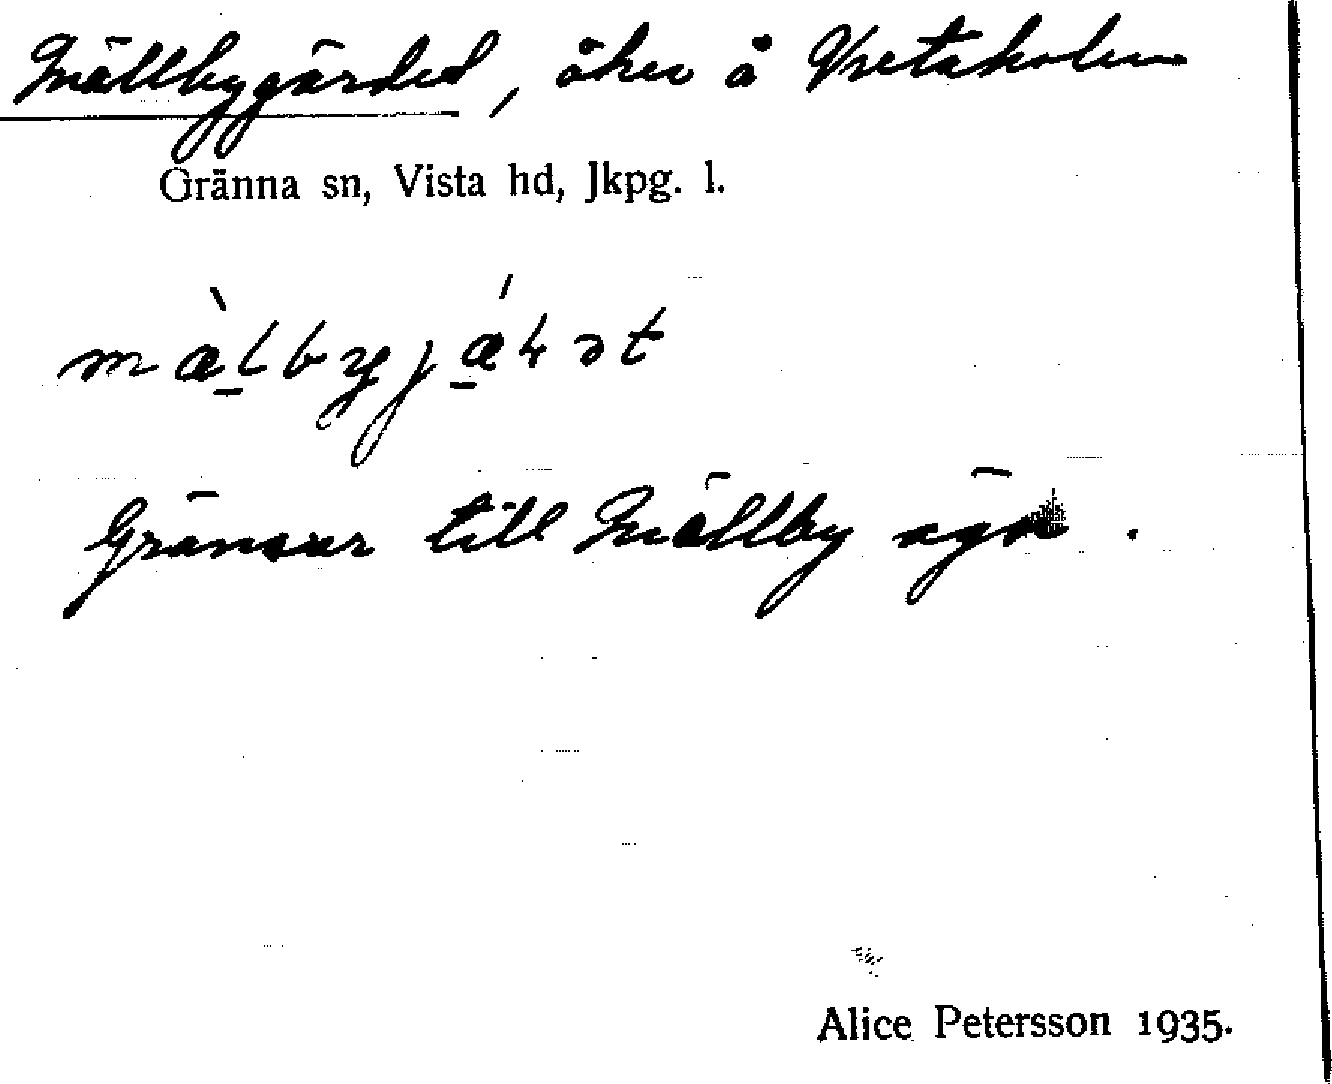 Mällbygärdet, åker å Vretaholm
Gränna sn, Vista hd, Jkpg. l.
Gränsar till Mällby ägor.
Alice Petersson 1935.